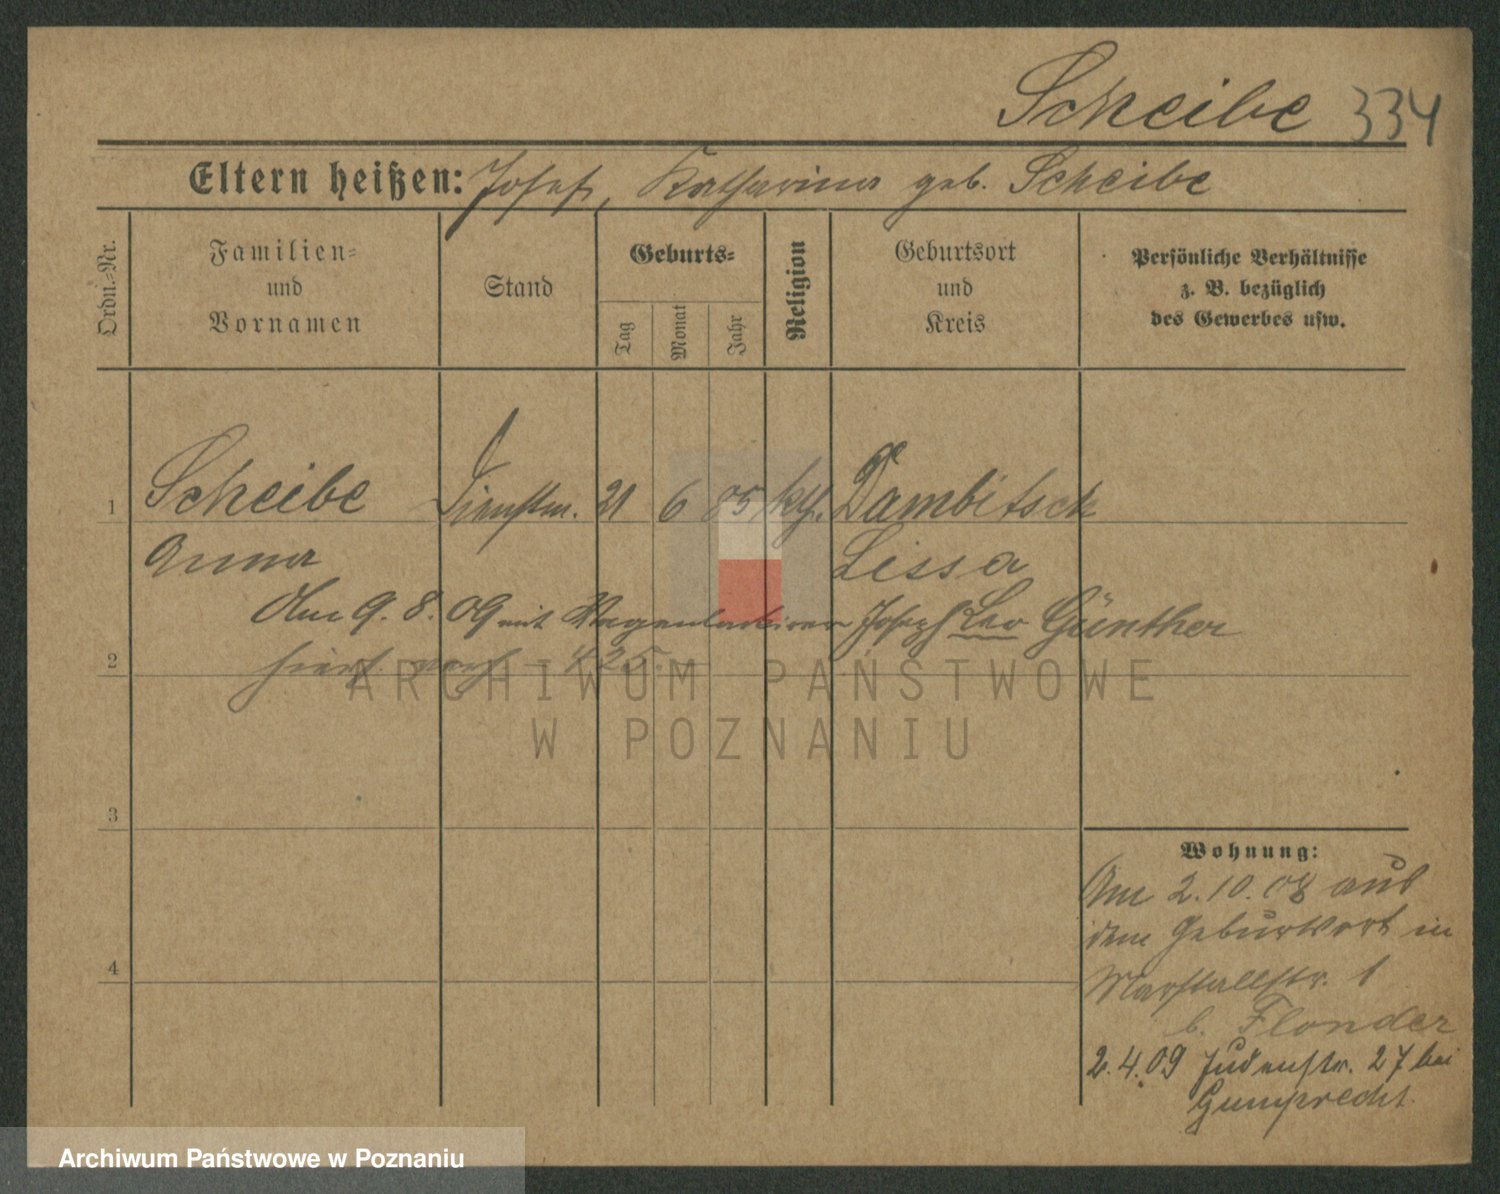 Scheibe 334
Eltern heißen: Josef, Katharina geb. Scheibe
Ordn.-Nr.
Familien-
und
Vornamen
Stand
Geburts-
Tag
Monat
Jahr
Religion
Geburtsort
und
Kreis
Persönliche Verhältnisse
z. B. bezüglich
des Gewerbes usw.
1 Scheibe Dienstm. 21 6 85 kth. Dambitsch
Anna Lissa
Am 9. 8. 09 mit Wagenlackirer Joseph Leo Günther
2 hier verh. 425.
3
4
Wohnung:
Am 2.10.08 aus
dem Geburtsort in
Marstallstr. 1
b. Flonder
2.4.09 Judenstr. 27 bei
Gumprecht.
ARCHIWUM PAŃSTWOWE
W POZNANIU
Archiwum Państwowe w Poznaniu